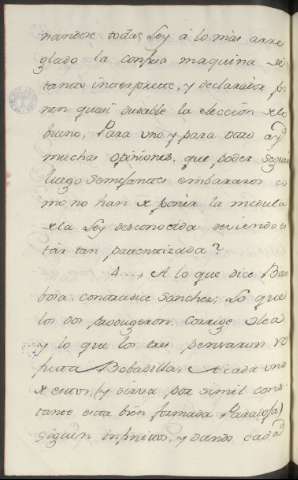 todas, Ley á lo mas arre
glado la confusa maquina de
tantos interpretes, y declarara
quasi dudable la eleccion de lo
bueno. Para uno y para otro ay
muchas opiniones, que poder seguir
luego semejantes embarazos co
mo no han de poner la medula
de la Ley desconocida deviendo es
tar tan patentizada?
4.... A lo que dice Bar
bosa contradice Sanches, Lo que
los dos produgeron, corrige Olea
y lo que los tres pensaron re
futa Bobadilla. A cada uno
de estos, (y sirva por simil cons
tante esta bien formada Paradoja)
siguen infinitos, y siendo cada